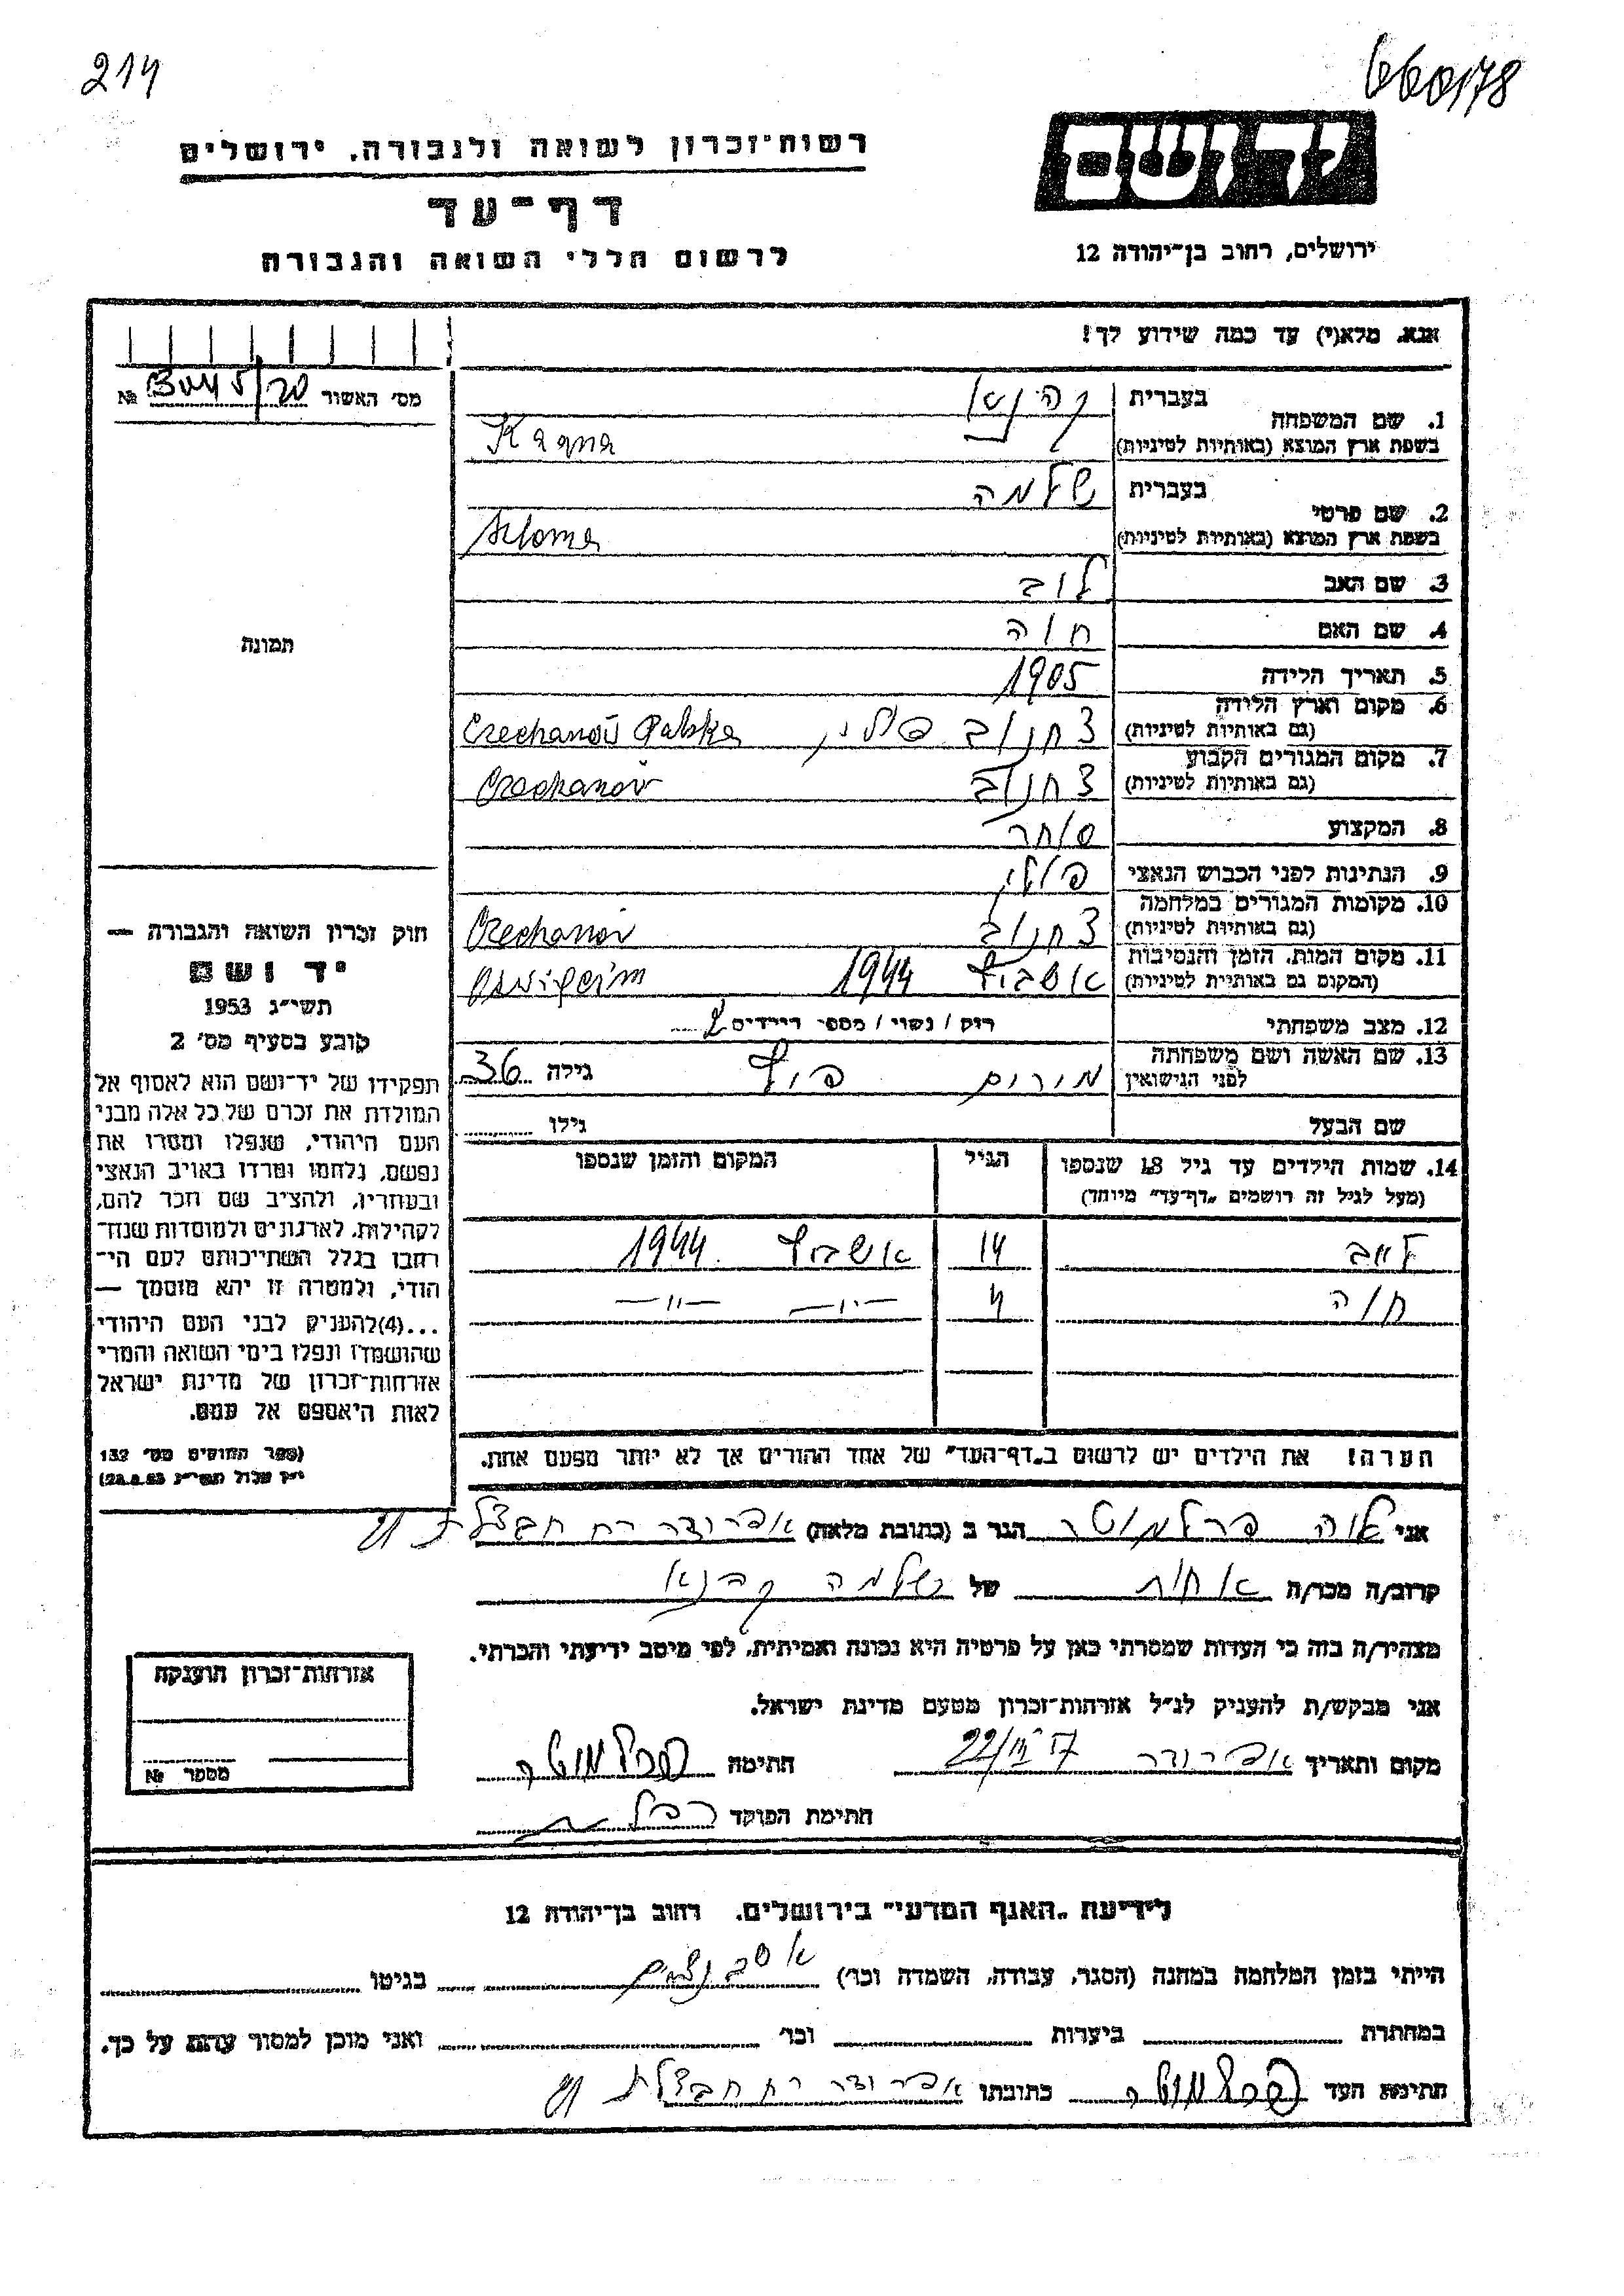 214
660178
רשות־זכרון לשואה ולגבורה, ירושלים
יד ושם
דף־עד
לרשום חללי השואה והגבורה
ירושלים, רחוב בן־יהודה 12
אנא, מלא(י) עד כמה שידוע לך!
מס׳ האשור №
1. שם המשפחה בעברית קהנא
בשפת ארץ המוצא (באותיות לטיניות) Kagna
2. שם פרטי בעברית שלמה
בשפת ארץ המוצא (באותיות לטיניות) Szloma
3. שם האב לוב
4. שם האם חוה
תמונה
5. תאריך הלידה 1905
6. מקום וארץ הלידה
(גם באותיות לטיניות) צחנוב פולין Czechanov Polska
7. מקום המגורים הקבוע
(גם באותיות לטיניות) צחנוב Czechanov
8. המקצוע סוחר
9. הנתינות לפני הכבוש הנאצי פולין
10. מקומות המגורים במלחמה
(גם באותיות לטיניות) צחנוב Czechanov
11. מקום המות, הזמן והנסיבות
(המקום גם באותיות לטיניות) אושביץ 1944 Oswięcim
12. מצב משפחתי רווק / נשוי / מספר הילדים 2
13. שם האשה ושם משפחתה
לפני הנישואין מורים גילה 36
שם הבעל גילו
14. שמות הילדים עד גיל 18 שנספו הגיל המקום והזמן שנספו
(מעל לגיל זה רושמים „דף־עד" מיוחד)
לייב 14 אושביץ 1944
חוה 4 —״— —״— —״—
הערה! את הילדים יש לרשום ב„דף־העד" של אחד ההורים אך לא יותר מפעם אחת.
חוק זכרון השואה והגבורה —
יד ושם
תשי״ג 1953
קובע בסעיף מס׳ 2
תפקידו של יד־ושם הוא לאסוף אל
המולדת את זכרם של כל אלה מבני
העם היהודי, שנפלו ומסרו את
נפשם, נלחמו ומרדו באויב הנאצי
ובעוזריו, ולהציב שם וזכר להם,
לקהילות, לארגונים ולמוסדות שנח־
רבו בגלל השתייכותם לעם הי־
הודי, ולמטרה זו יהא מוסמך —
...(4) להעניק לבני העם היהודי
שהושמדו ונפלו בימי השואה והמרי
אזרחות־זכרון של מדינת ישראל
לאות היאספם אל עמם.
(ספר החוקים מס׳ 132
י״ז אלול תשי״ג 28.8.53)
אני לאה פרלמוטר הגר ב (כתובת מלאה) אפרידר רח חבצלת
קרוב/ה מכר/ה אחות של שלמה קהנא
מצהיר/ה בזה כי העדות שמסרתי כאן על פרטיה היא נכונה ואמיתית, לפי מיטב ידיעתי והכרתי.
אני מבקש/ת להעניק לנ״ל אזרחות־זכרון מטעם מדינת ישראל.
מקום ותאריך אפרידר חתימה פרלמוטר
חתימת הפוקד
אזרחות־זכרון הוענקה
מספר №
לידיעת „האגף המדעי" בירושלים, רחוב בן־יהודה 12
הייתי בזמן המלחמה במחנה (הסגר, עבודה, השמדה וכו׳) בגיטו
במחתרת ביערות וכו׳ ואני מוכן למסור עדות על כך.
חתימת העד פרלמוטר כתובתו אפרידר רח חבצלת